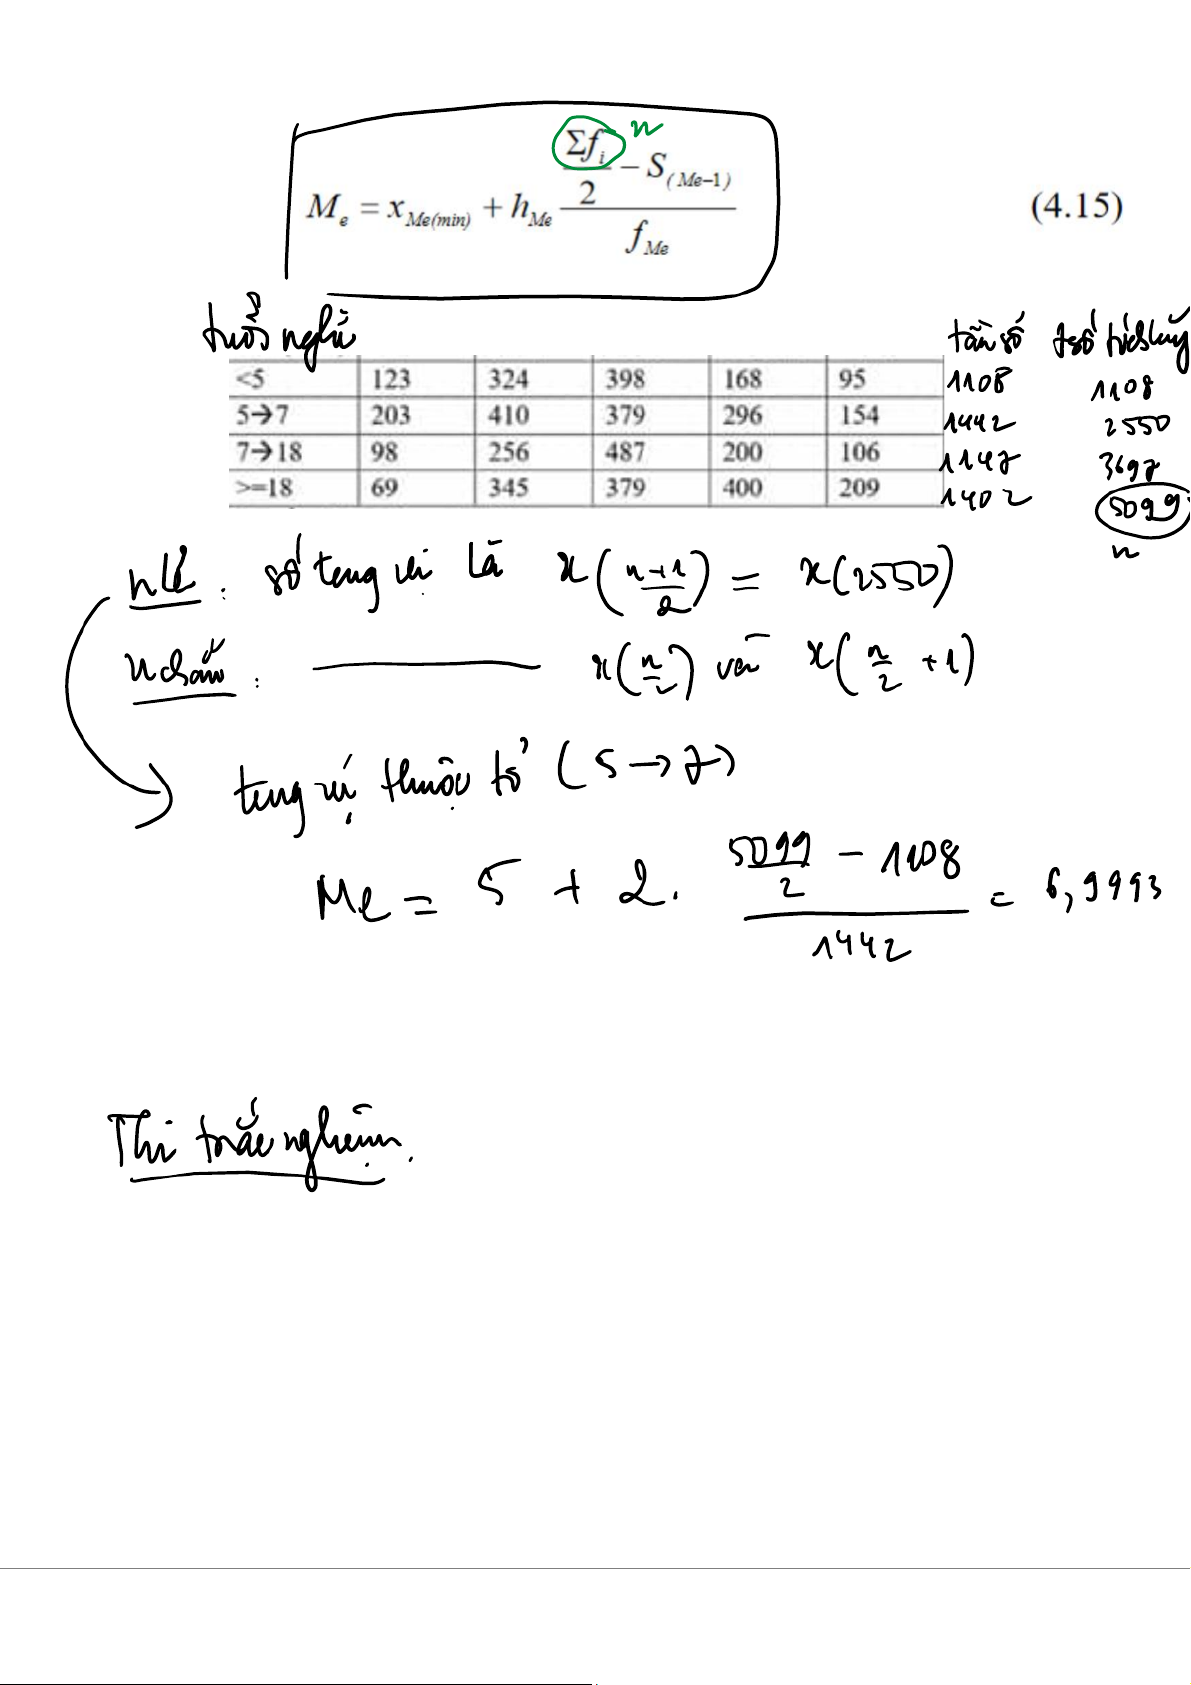 M_e = x_{Me(min)} + h_{Me} \frac{\frac{Σf_i}{2} - S_{(Me-1)}}{f_{Me}} (4.15)
n
tuổi nghề tần số tsố tích lũy
<5 123 324 398 168 95 1108 1108
5→7 203 410 379 296 154 1442 2550
7→18 98 256 487 200 106 1147 3697
>=18 69 345 379 400 209 1402 5099
n
n lẻ : số trung vị là x(\frac{n+1}{2}) = x(2550)
n chẵn : x(\frac{n}{2}) và x(\frac{n}{2} + 1)
→ trung vị thuộc tổ (5 → 7)
Me = 5 + 2. \frac{\frac{5099}{2} - 1108}{1442} = 6,9993
Thi trắc nghiệm.